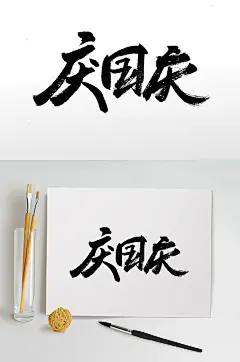 庆国庆
庆国庆